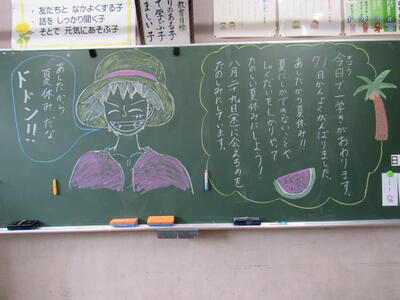 友だちと なかよくする子
話を しっかり聞く子
そとで 元気にあそぶ子
教育目標
今日で一学きがおわります。
71日かんよくがんばりました。
あしたから夏休み!!
夏にしかできないことや
しゅくだいをしっかりやって
たのしい夏休みにしよう!
八月二十九日(木)に会えるのを
たのしみにしています。
あしたから
夏休みだな
ドドン!!
日